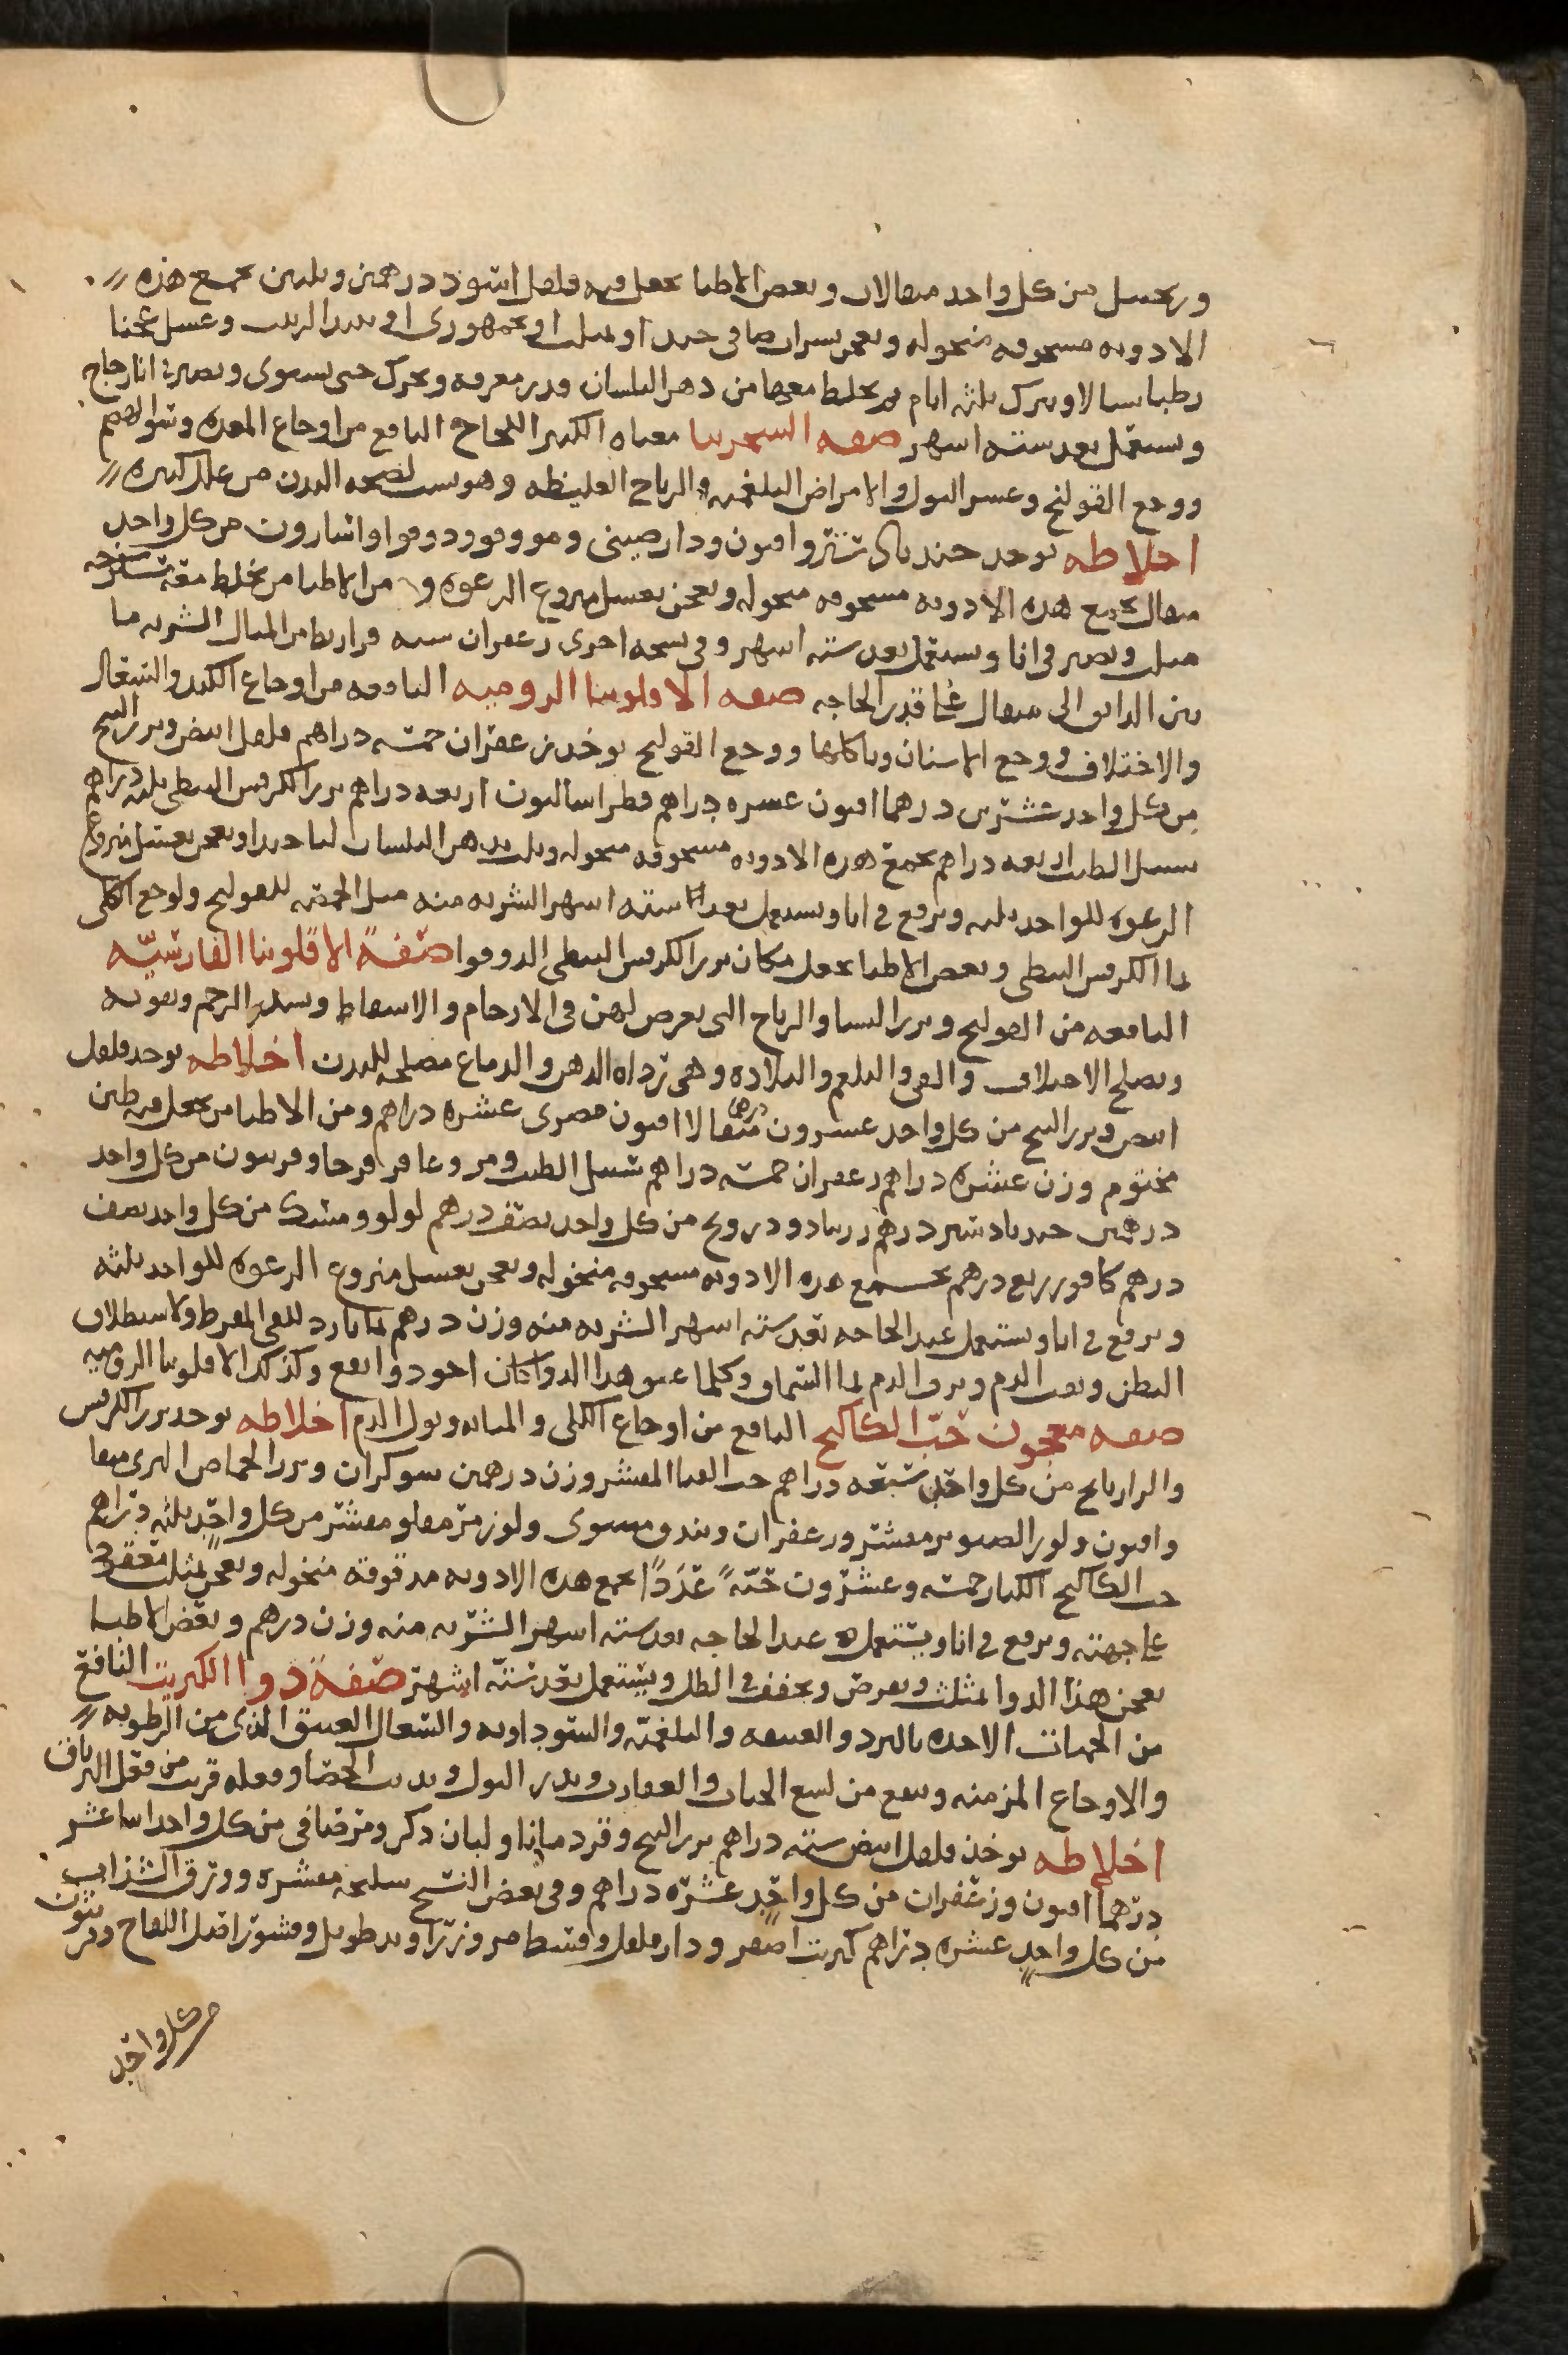 وزنجبيل من كل واحد مثقالان وبعض الاطبا يجعل فيه فلفل اسود درهمين وثلثين تجمع هذه
الادويه مسحوقه منخوله وتعجن بشراب صافي جيد او بمثلث او بجمهوري او بنبيذ الزبيب وعسل عجنا
رطبا سيالا ويترك ثلثه ايام ثم يخلط معها من دهن البلسان قدر مغرفه ويحرك حتى يستوي ويصير في انا زجاج
ويستعمل بعد سته اشهر صفه السجرينا معناه الكثير النجاح النافع من اوجاع المعده وسو الهضم
ووجع القولنج وعسر البول والامراض البلغميه والرياح الغليظه وهو سبب لصحه البدن من علل كثيره
اخلاطه يوخذ جندبادستر وافيون ودارصيني ومو وفو ودوقوا واسارون من كل واحد
مثقال تجمع هذه الادويه مسحوقه منخوله وتعجن بعسل منزوع الرغوه ومن الاطبا من يخلط معه
ويصير في انا ويستعمل بعد سته اشهر وفي نسخه اخرى زعفران سته قراريط من المثال الشربه ما
بين الدانق الى مثقال على قدر الحاجه صفه الافلونيا الروميه النافعه من اوجاع الكبد والسعال
والاختلاف ووجع الاسنان وتاكلها ووجع القولنج يوخذ زعفران خمسه دراهم فلفل ابيض وبزر البنج
من كل واحد عشرين درهما افيون عشره دراهم فطراساليون اربعه دراهم بزر الكرفس النبطي ثلثه دراهم
سنبل الطيب اربعه دراهم تجمع هذه الادويه مسحوقه منخوله وتلت بدهن البلسان لتا جيدا وتعجن بعسل منزوع
الرغوه للواحد ثلثه ويرفع في انا ويستعمل بعد سته اشهر الشربه منه مثل الحمصه للقولنج ولوجع الكلى
بما الكرفس النبطي وبعض الاطبا يجعل مكان بزر الكرفس النبطي الدوقوا صفة الافلونيا الفارسيّه
النافعه من القولنج ونزف النسا والرياح التي يعرض لهن في الارحام والاسقاط ويشد الرحم ويقويه
ويصلح الاختلاف والقي والبلغم والبلاده وهي تزداه الذهن والدماغ مصلحه للبدن اخلاطه يوخذ فلفل
ابيض وبزر البنج من كل واحد عشرون مثقالا درهما افيون مصري عشره دراهم ومن الاطبا من يجعل فيه طين
مختوم وزن عشره دراهم زعفران خمسه دراهم سنبل الطيب ومر وعاقر قرحا وفربيون من كل واحد
درهمين جندبادستر درهم زرنباد ودرونج من كل واحد نصف درهم لولو ومسك من كل واحد نصف
درهم كافور ربع درهم تجمع هذه الادويه مسحوقه منخوله وتعجن بعسل منزوع الرغوه للواحد ثلثه
ويرفع في انا ويستعمل عند الحاجه بعد سته اشهر الشربه منه وزن درهم بما بارد للقي المفرط ولاستطلاق
البطن ونفث الدم ونزف الدم بما السماق وكلما عتق هذا الدوا كان اجود وانفع وكذلك الافلونيا الروميه
صفه معجون حبّ الكاكنج النافع من اوجاع الكلى والمثانه وبول الدم اخلاطه يوخذ بزر الكرفس
والرازيانج من كل واحد سبعه دراهم حب القثا المقشر وزن درهمين شوكران وبزر الحماض البري
وافيون ولوز الصنوبر مقشر وزعفران وبندق مشوي ولوز مر مقلو مقشر من كل واحد ثلثه دراهم
حب الكاكنج الكبار خمسه وعشرون حبّةً عَدَدًا تجمع هذه الادويه مدقوقة منخوله وتعجن بمثلث
على جهته ويرفع في انا ويستعمل عند الحاجه بعد سته اشهر الشربه منه وزن درهم وبعض الاطبا
يعجن هذا الدوا بمثلث ويقرص ويجفف في الظل ويستعمل بعد ستّه اشهر صفة دوا الكبريت النافع
من الحميات الاخذه بالبرد والعتيقه والبلغميّه والسوداويه والسعال العتيق الذي من الرطوبه
والاوجاع المزمنه وينفع من لسع الحيات والعقارب ويدر البول ويذيب الحصا وفعله قريب من فعل الترياق
اخلاطه يوخذ فلفل ابيض سته دراهم بزر البنج وقردمانا ولبان ذكر ومر صافي من كل واحد اثنا عشر
درهما افيون وزعفران من كل واحد عشره دراهم وفي بعض النسخ سليخه مقشره وورق السذاب
من كل واحد عشره دراهم كبريت اصفر ودارفلفل وقسط مر وزراوند طويل وقشور اصل اللفاح وفربيون
من كل واحد